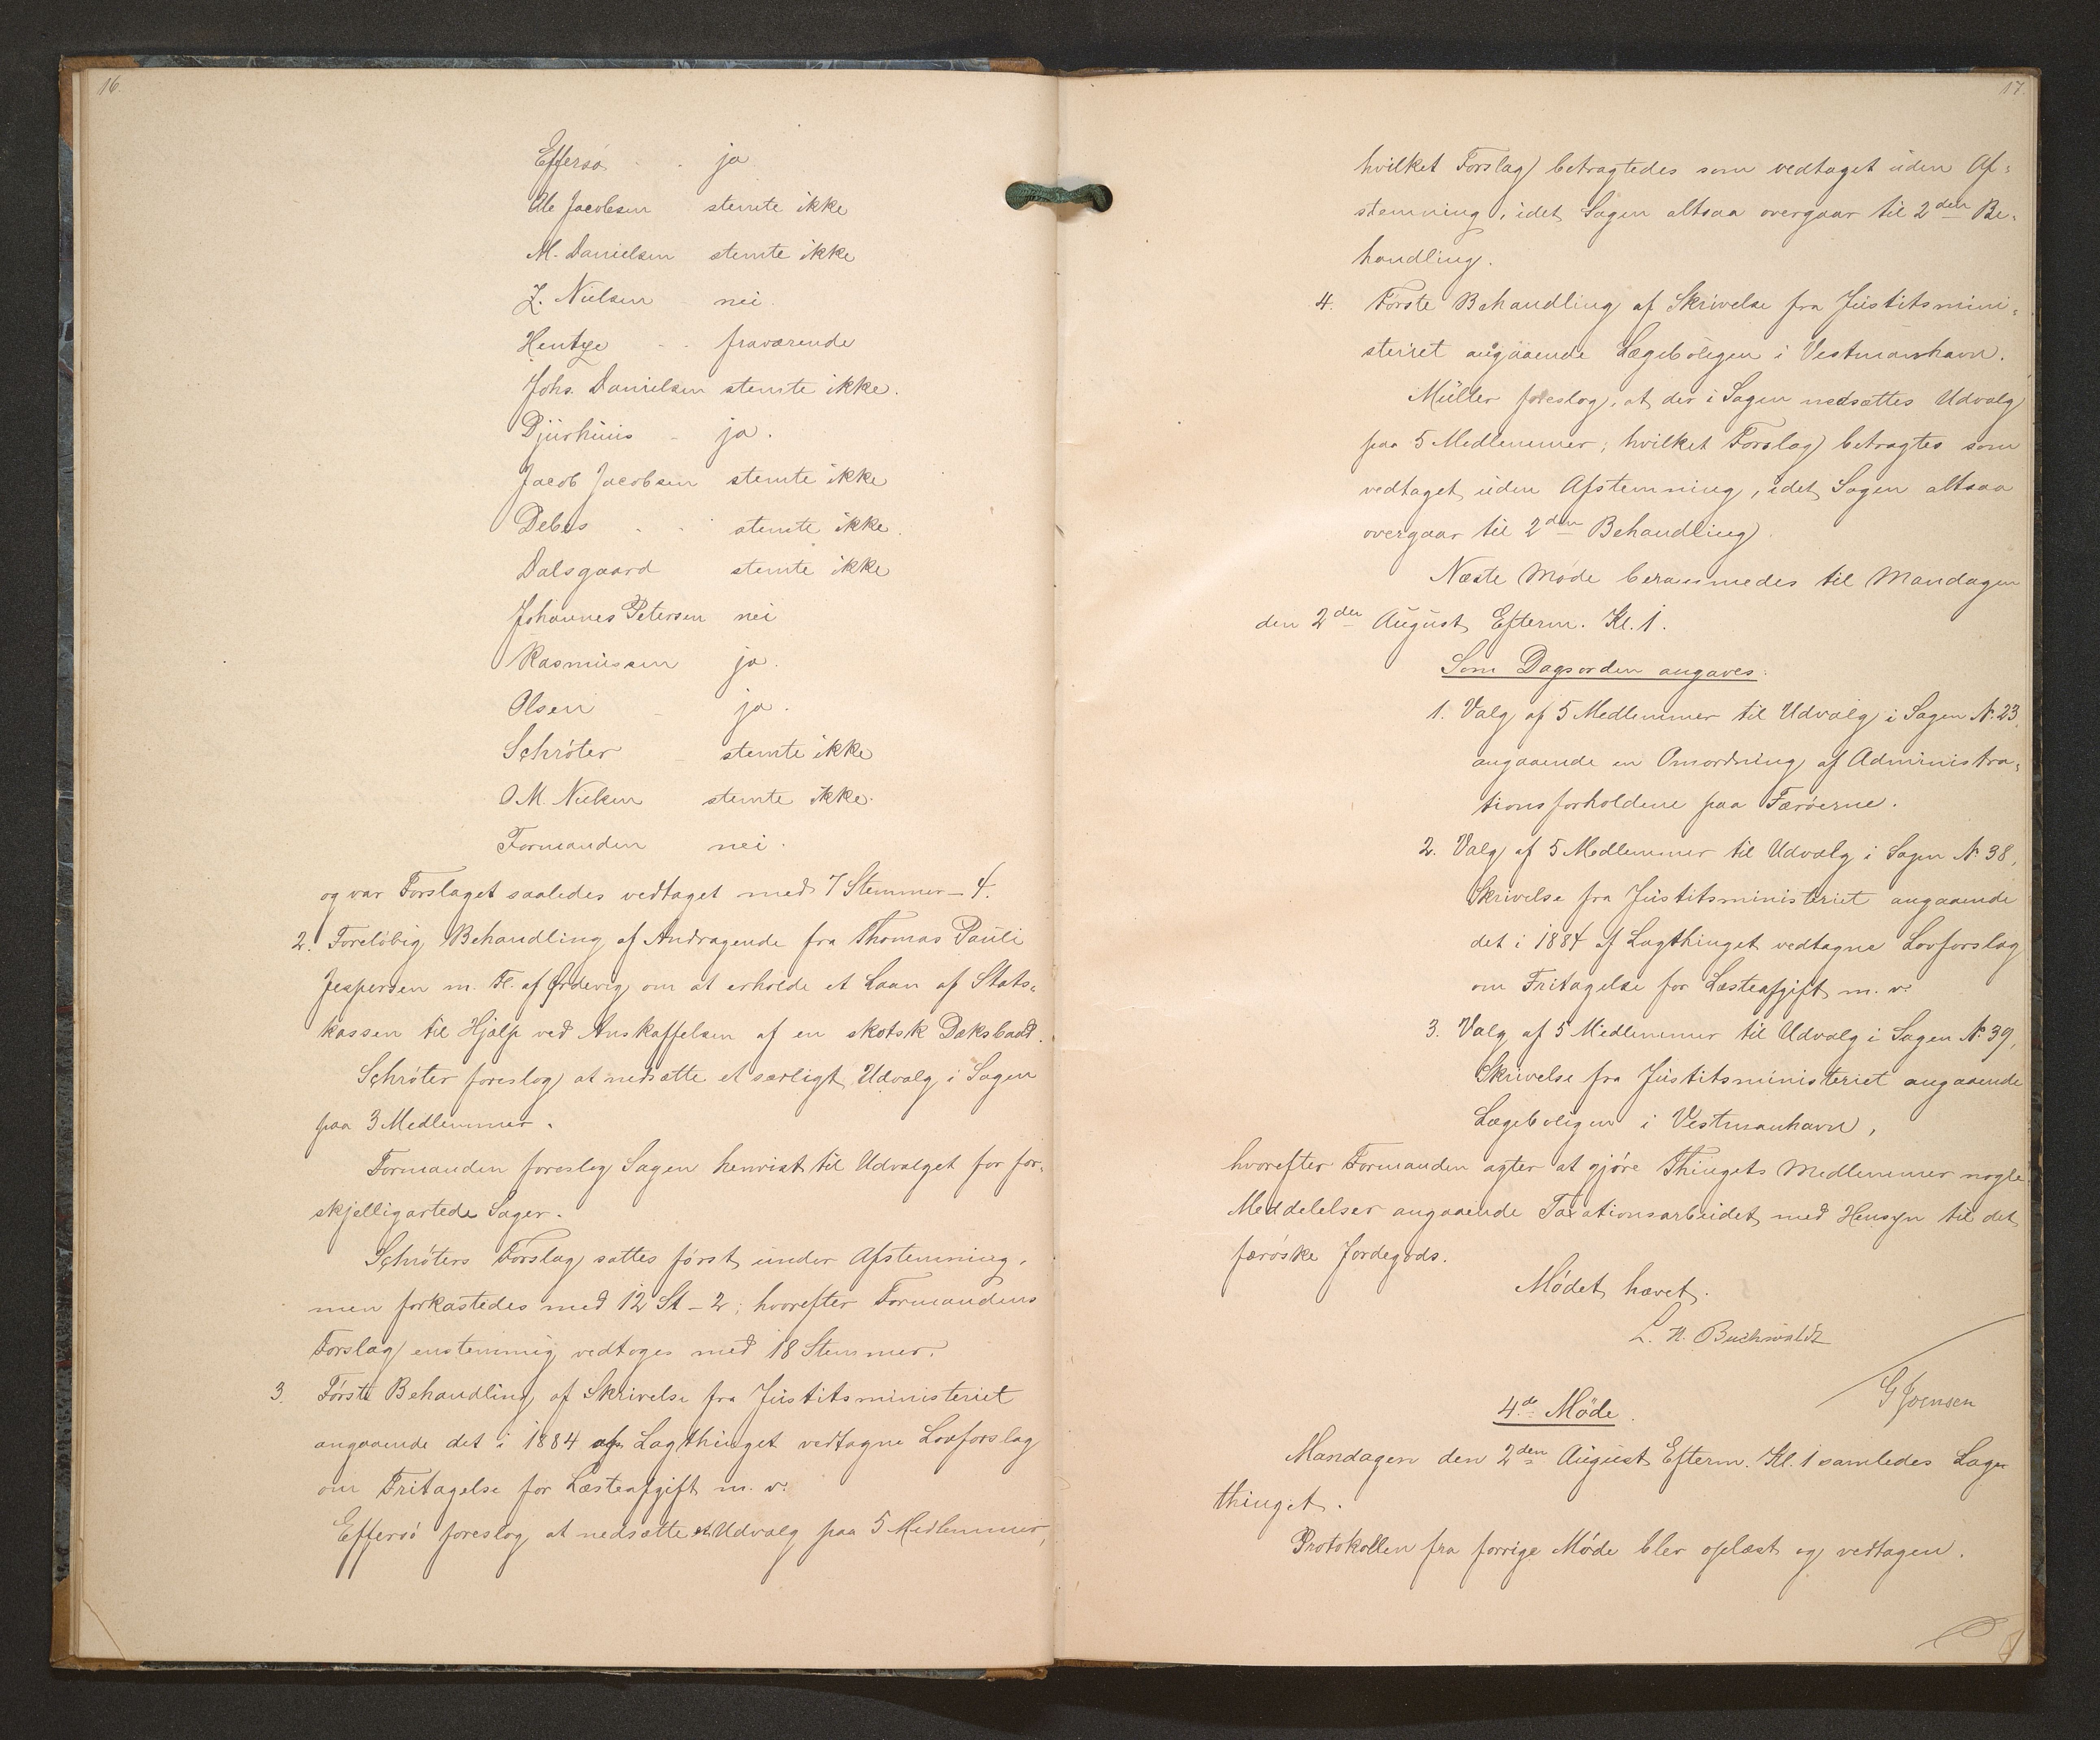 16.
Effersö - - ja
Ole Jacobsen stemte ikke
M. Danielsen stemte ikke
Z. Nielsen nei.
Hentze - - fraværende
Johs. Danielsen stemte ikke.
Djurhuus - ja.
Jacob Jacobsen stemte ikke
Debes - - stemte ikke.
Dalsgaard stemte ikke
Johannes Petersen nei
Rasmussen ja.
Olsen - ja.
Schröter - stemte ikke
O M. Nielsen stemte ikke.
Formanden nei.
og var Forslaget saaledes vedtaget med 7 Stemmer - 4.
2. Foreløbig Behandling af Andragende fra Thomas Pauli
Jespersen m. Fl. af Ørdevig om at erholde et Laan af Stats-
kassen til Hjælp ved Anskaffelsen af en skotsk Dæksbaad.
Schröter foreslog at nedsætte et særligt Udvalg i Sagen
paa 3 Medlemmer.
Formanden foreslog Sagen henvist til Udvalget for for-
skjelligartede Sager.
Schröters Forslag sattes først under Afstemning,
men forkastedes med 12 St - 2; hvorefter Formandens
Forslag enstemmig vedtoges med 18 Stemmer.
3. Første Behandling af Skrivelse fra Justitsministeriet
angaaende det i 1884 af Lagthinget vedtagne Lovforslag
om Fritagelse for Læsteafgift m. v.
Effersö foreslog at nedsætte et Udvalg paa 5 Medlemmer,
17.
hvilket Forslag betragtedes som vedtaget uden Af-
stemning, idet Sagen altsaa overgaar til 2den Be-
handling.
4. Første Behandling af Skrivelse fra Justitsmini-
steriet angaaende Lægeboligen i Vestmanhavn.
Müller foreslog, at der i Sagen nedsættes Udvalg
paa 5 Medlemmer; hvilket Forslag betragtes som
vedtaget uden Afstemning, idet Sagen altsaa
overgaar til 2den Behandling.
Næste Møde berammedes til Mandagen
den 2den August Efterm. Kl. 1.
Som Dagsorden angaves:
1. Valg af 5 Medlemmer til Udvalg i Sagen No. 23,
angaaende en Omordning af Administra-
tionsforholdene paa Færöerne.
2. Valg af 5 Medlemmer til Udvalg i Sagen No. 38,
Skrivelse fra Justitsministeriet angaaende
det i 1884 af Lagthinget vedtagne Lovforslag
om Fritagelse for Læsteafgift m. v.
3. Valg af 5 Medlemmer til Udvalg i Sagen No. 39,
Skrivelse fra Justitsministeriet angaaende
Lægeboligen i Vestmanhavn,
hvorefter Formanden agter at gjøre Thingets Medlemmer nogle
Meddelelser angaaende Taxationsarbeidet med Hensyn til det
færøske Jordegods.
Mødet hævet.
L. H. Buchwaldt
G Joensen
4de Møde.
Mandagen den 2den August Efterm. Kl. 1 samledes Lag-
thinget.
Protokollen fra forrige Møde blev oplæst og vedtagen.